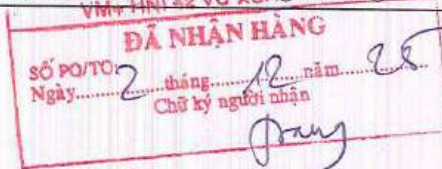 VM+ HNI 42 VŨ
ĐÃ NHẬN HÀNG
SỐ PO/TO
Ngày 2 tháng 12 năm 25
Chữ ký người nhận